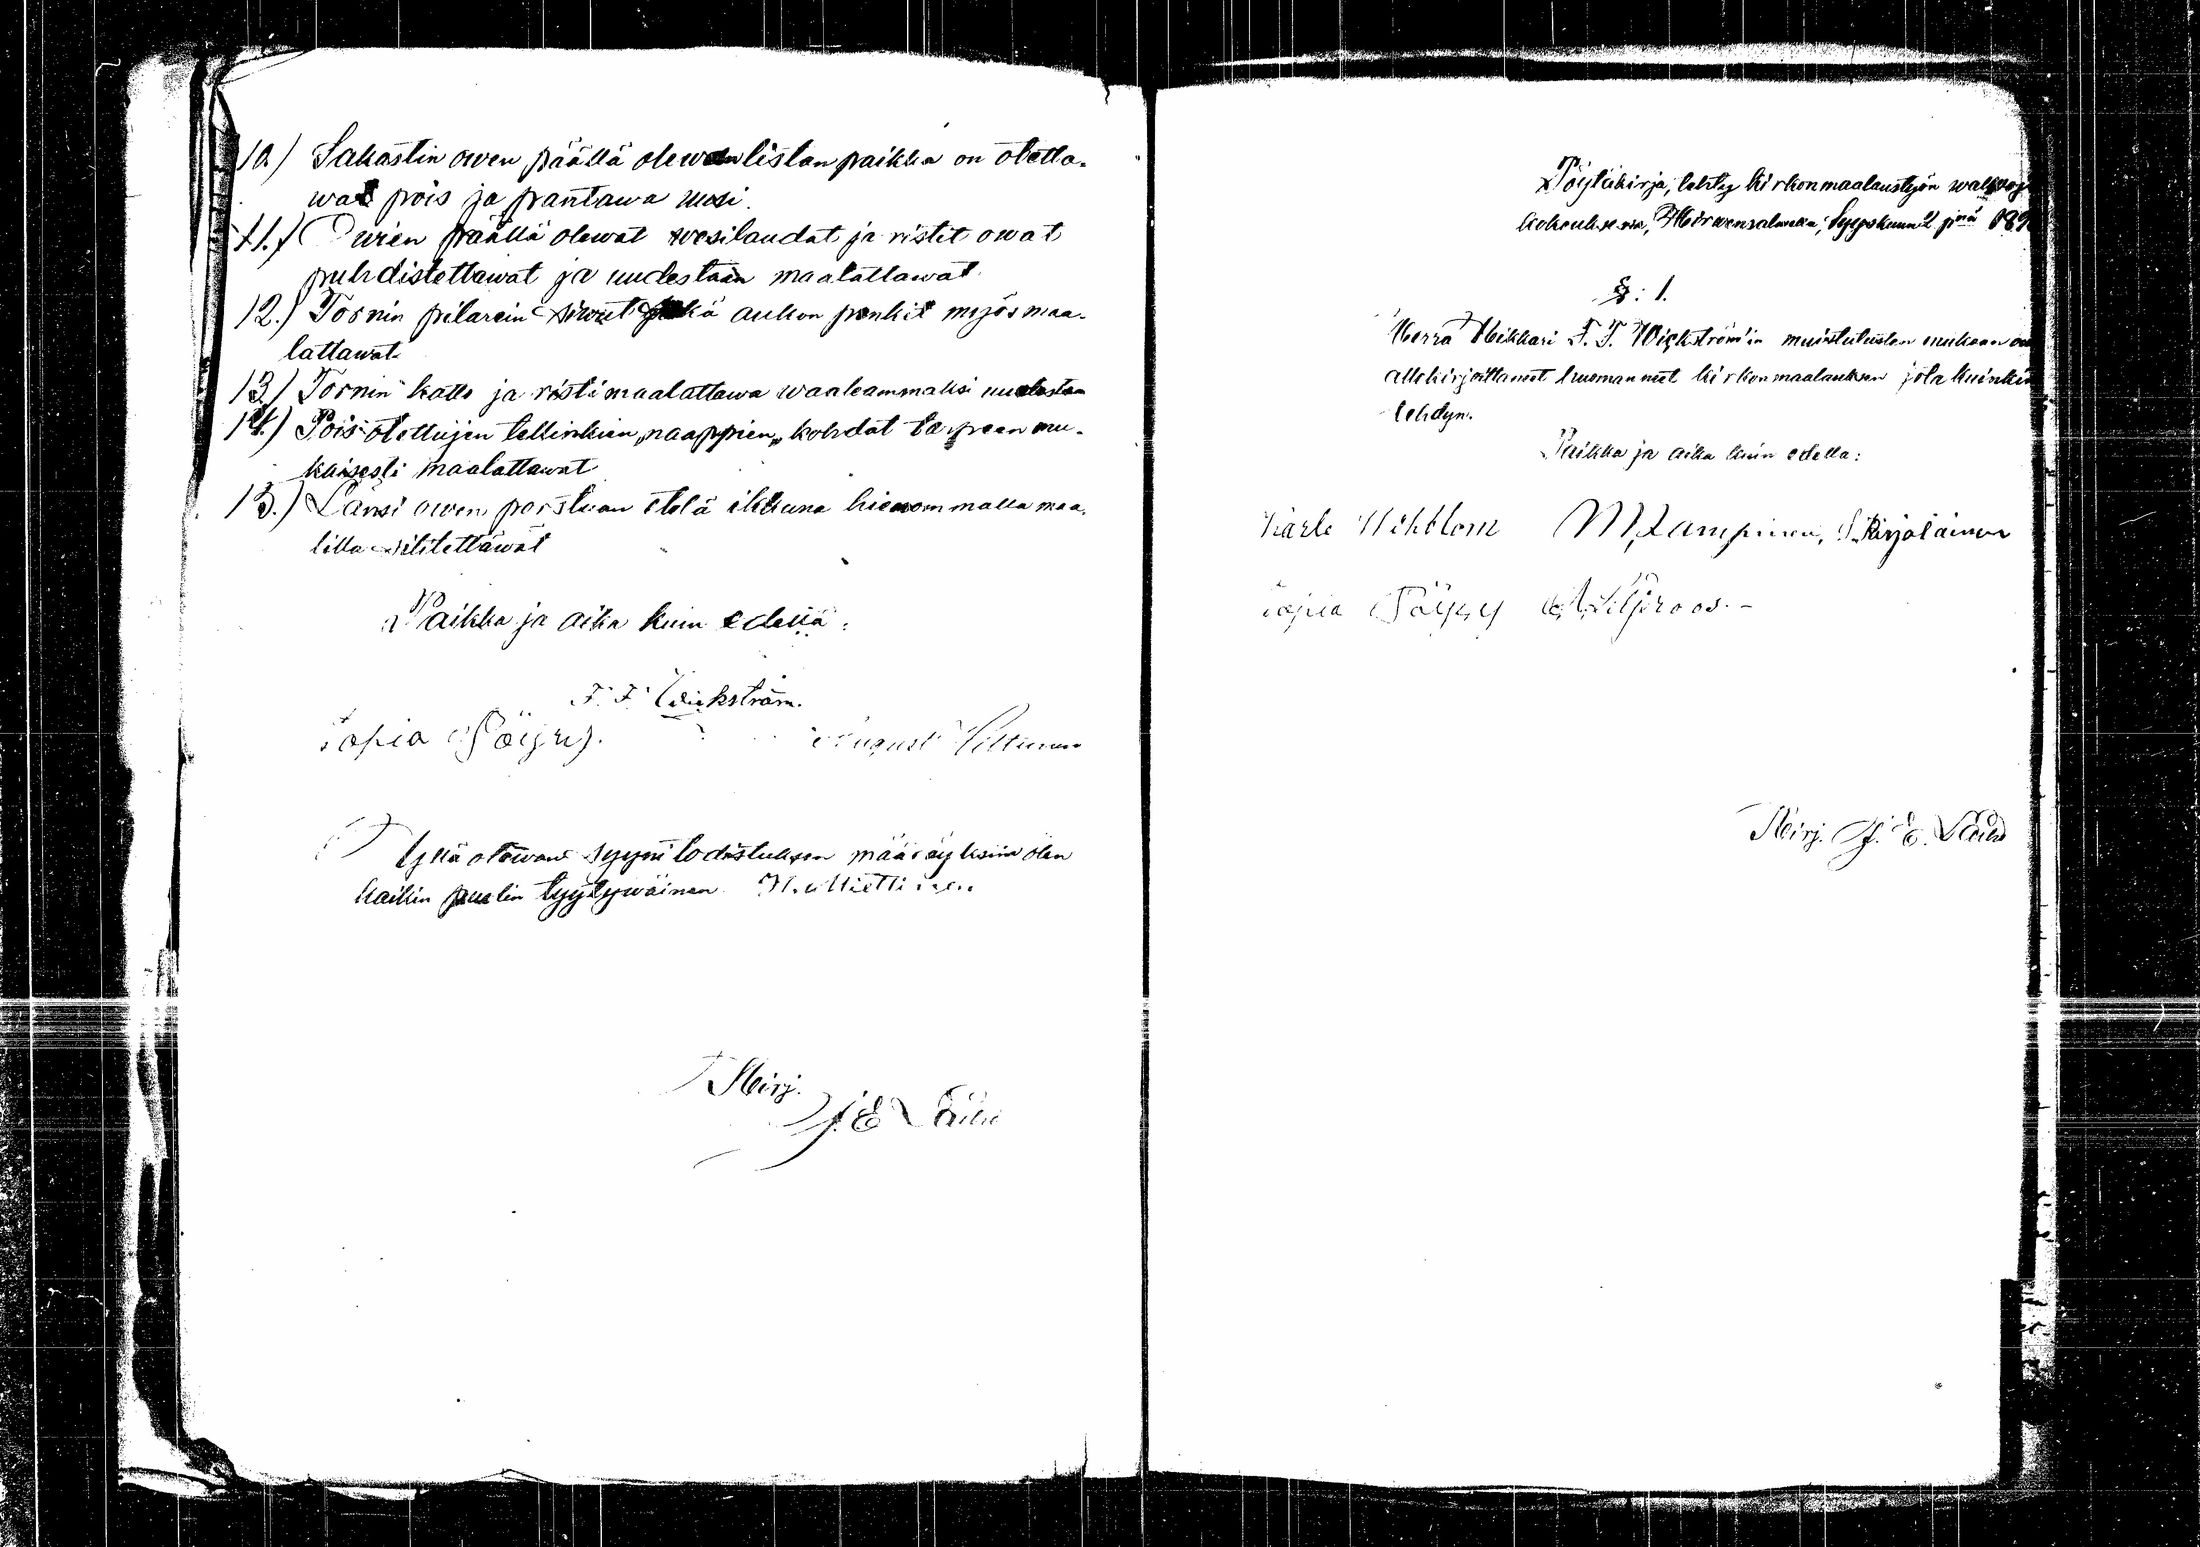 10.) Sakastin owen päällä olewan listan paikka on otetta-
wat pois ja pantawa uusi.
11.) Owien päällä olewat wesilaudat ja ristit owat
puhdistettawat ja uudestaan maalattawat.
12.) Tornin pilarein siwut sekä aukon penkit myös maa-
lattawat.
13.) Tornin katto ja risti maalattawa waaleammaksi uudestan
14.) Pois otettujen tellinkien „naappien„ kohdat tarpeen mu-
kaisesti maalattawat
15.) Länsi owen porstuan etelä ikkuna hienommalla maa-
lilla silitettäwät
Paikka ja aika kuin edellä:
F. F. Wickström.
Tapia Pöyry. August Siltunen
Yllä olewan syynitodistuksen määräyksiin olen
kaikin puolin tyytywäinen H. Miettinen
Kirj.
J. E.
Pöytäkirja, tehty kirkonmaalaustyön
kokouksessa, Hirwensalmella, Syyskuun 2 pnä 189
§: 1.
Herra Nikkari F. F. Wickström'in muistutusten mukaan on
allekirjoittaneet huomanneet kirkonmaalauksen jotakuinkin
tehdyn.
Paikka ja aika kuin edellä:
Karle Wikblom M. Lampinen, S. Karjalainen
Tapia Pöyry A. Liljeroos. -
Kirj. J. E.